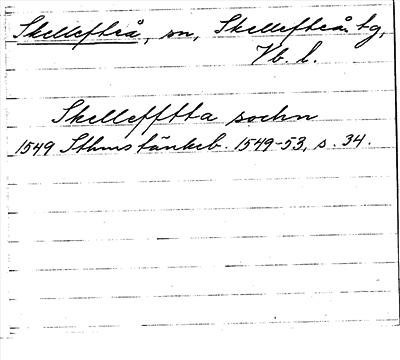 Skellefteå, sn, Skellefteå tg,
Vb. l.
Skellefftta sochn
1549 Sthms tänkeb. 1549-53, s. 34.